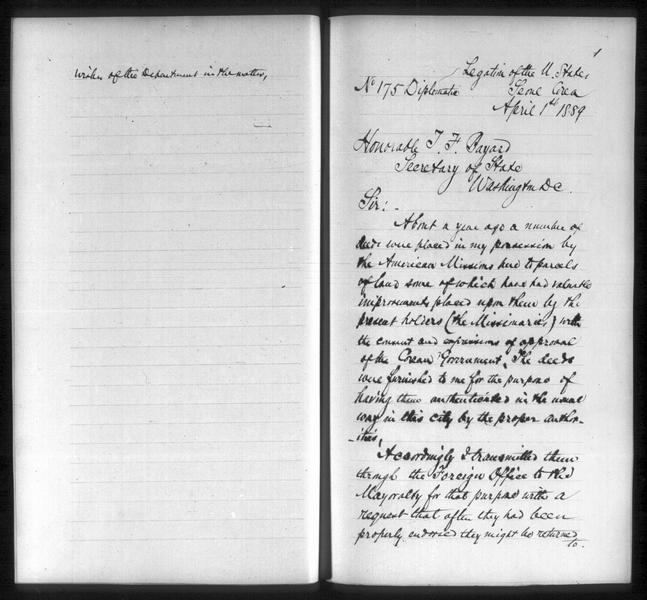 wishes of the Department in the matter,
1
Legation of the U. States
No 175 Diplomatic Seoul Corea
April 1st 1889
Honorable T. F. Bayard
Secretary of State
Washington DC.
Sir: -
About a year ago a number of
deeds were placed in my possession by
the American Missions here to parcels
of land some of which have had valuable
improvements placed upon them by the
present holders (the Missionaries) with
the consent and expressions of approval
of the Corean Government. The deeds
were furnished to me for the purpose of
having them authenticated in the usual
way in this city by the proper author-
-ities,
Accordingly I transmitted them
through the Foreign Office to the
Mayoralty for that purpose with a
request that after they had been
properly endorsed they might be returned
to.